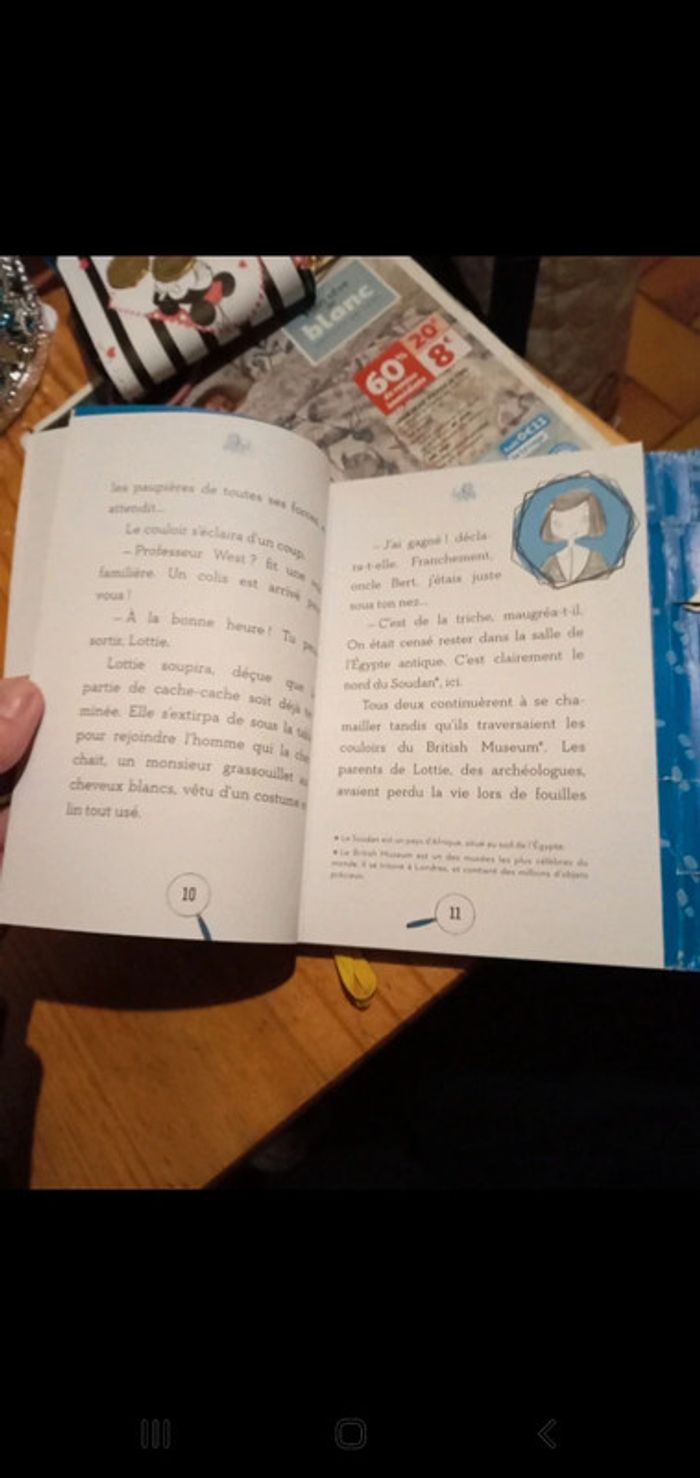 blanc
60%
20€
8€
les paupières de toutes ses forces
attendit...
Le couloir s'éclaira d'un coup.
– Professeur West ? fit une
familière. Un colis est arrivé
vous !
– À la bonne heure ! Tu
sortir, Lottie.
Lottie soupira, déçue que
partie de cache-cache soit déjà
minée. Elle s'extirpa de sous la
pour rejoindre l'homme qui la
chait, un monsieur grassouillet
cheveux blancs, vêtu d'un costume
lin tout usé.
10
– J'ai gagné ! décla-
ra-t-elle. Franchement,
oncle Bert, j'étais juste
sous ton nez...
– C'est de la triche, maugréa-t-il.
On était censé rester dans la salle de
l'Égypte antique. C'est clairement le
nord du Soudan*, ici.
Tous deux continuèrent à se cha-
mailler tandis qu'ils traversaient les
couloirs du British Museum*. Les
parents de Lottie, des archéologues,
avaient perdu la vie lors de fouilles
* Le Soudan est un pays d'Afrique, situé au sud de l'Égypte.
* Le British Museum est un des musées les plus célèbres du
monde. Il se trouve à Londres, et contient des millions d'objets
précieux.
11